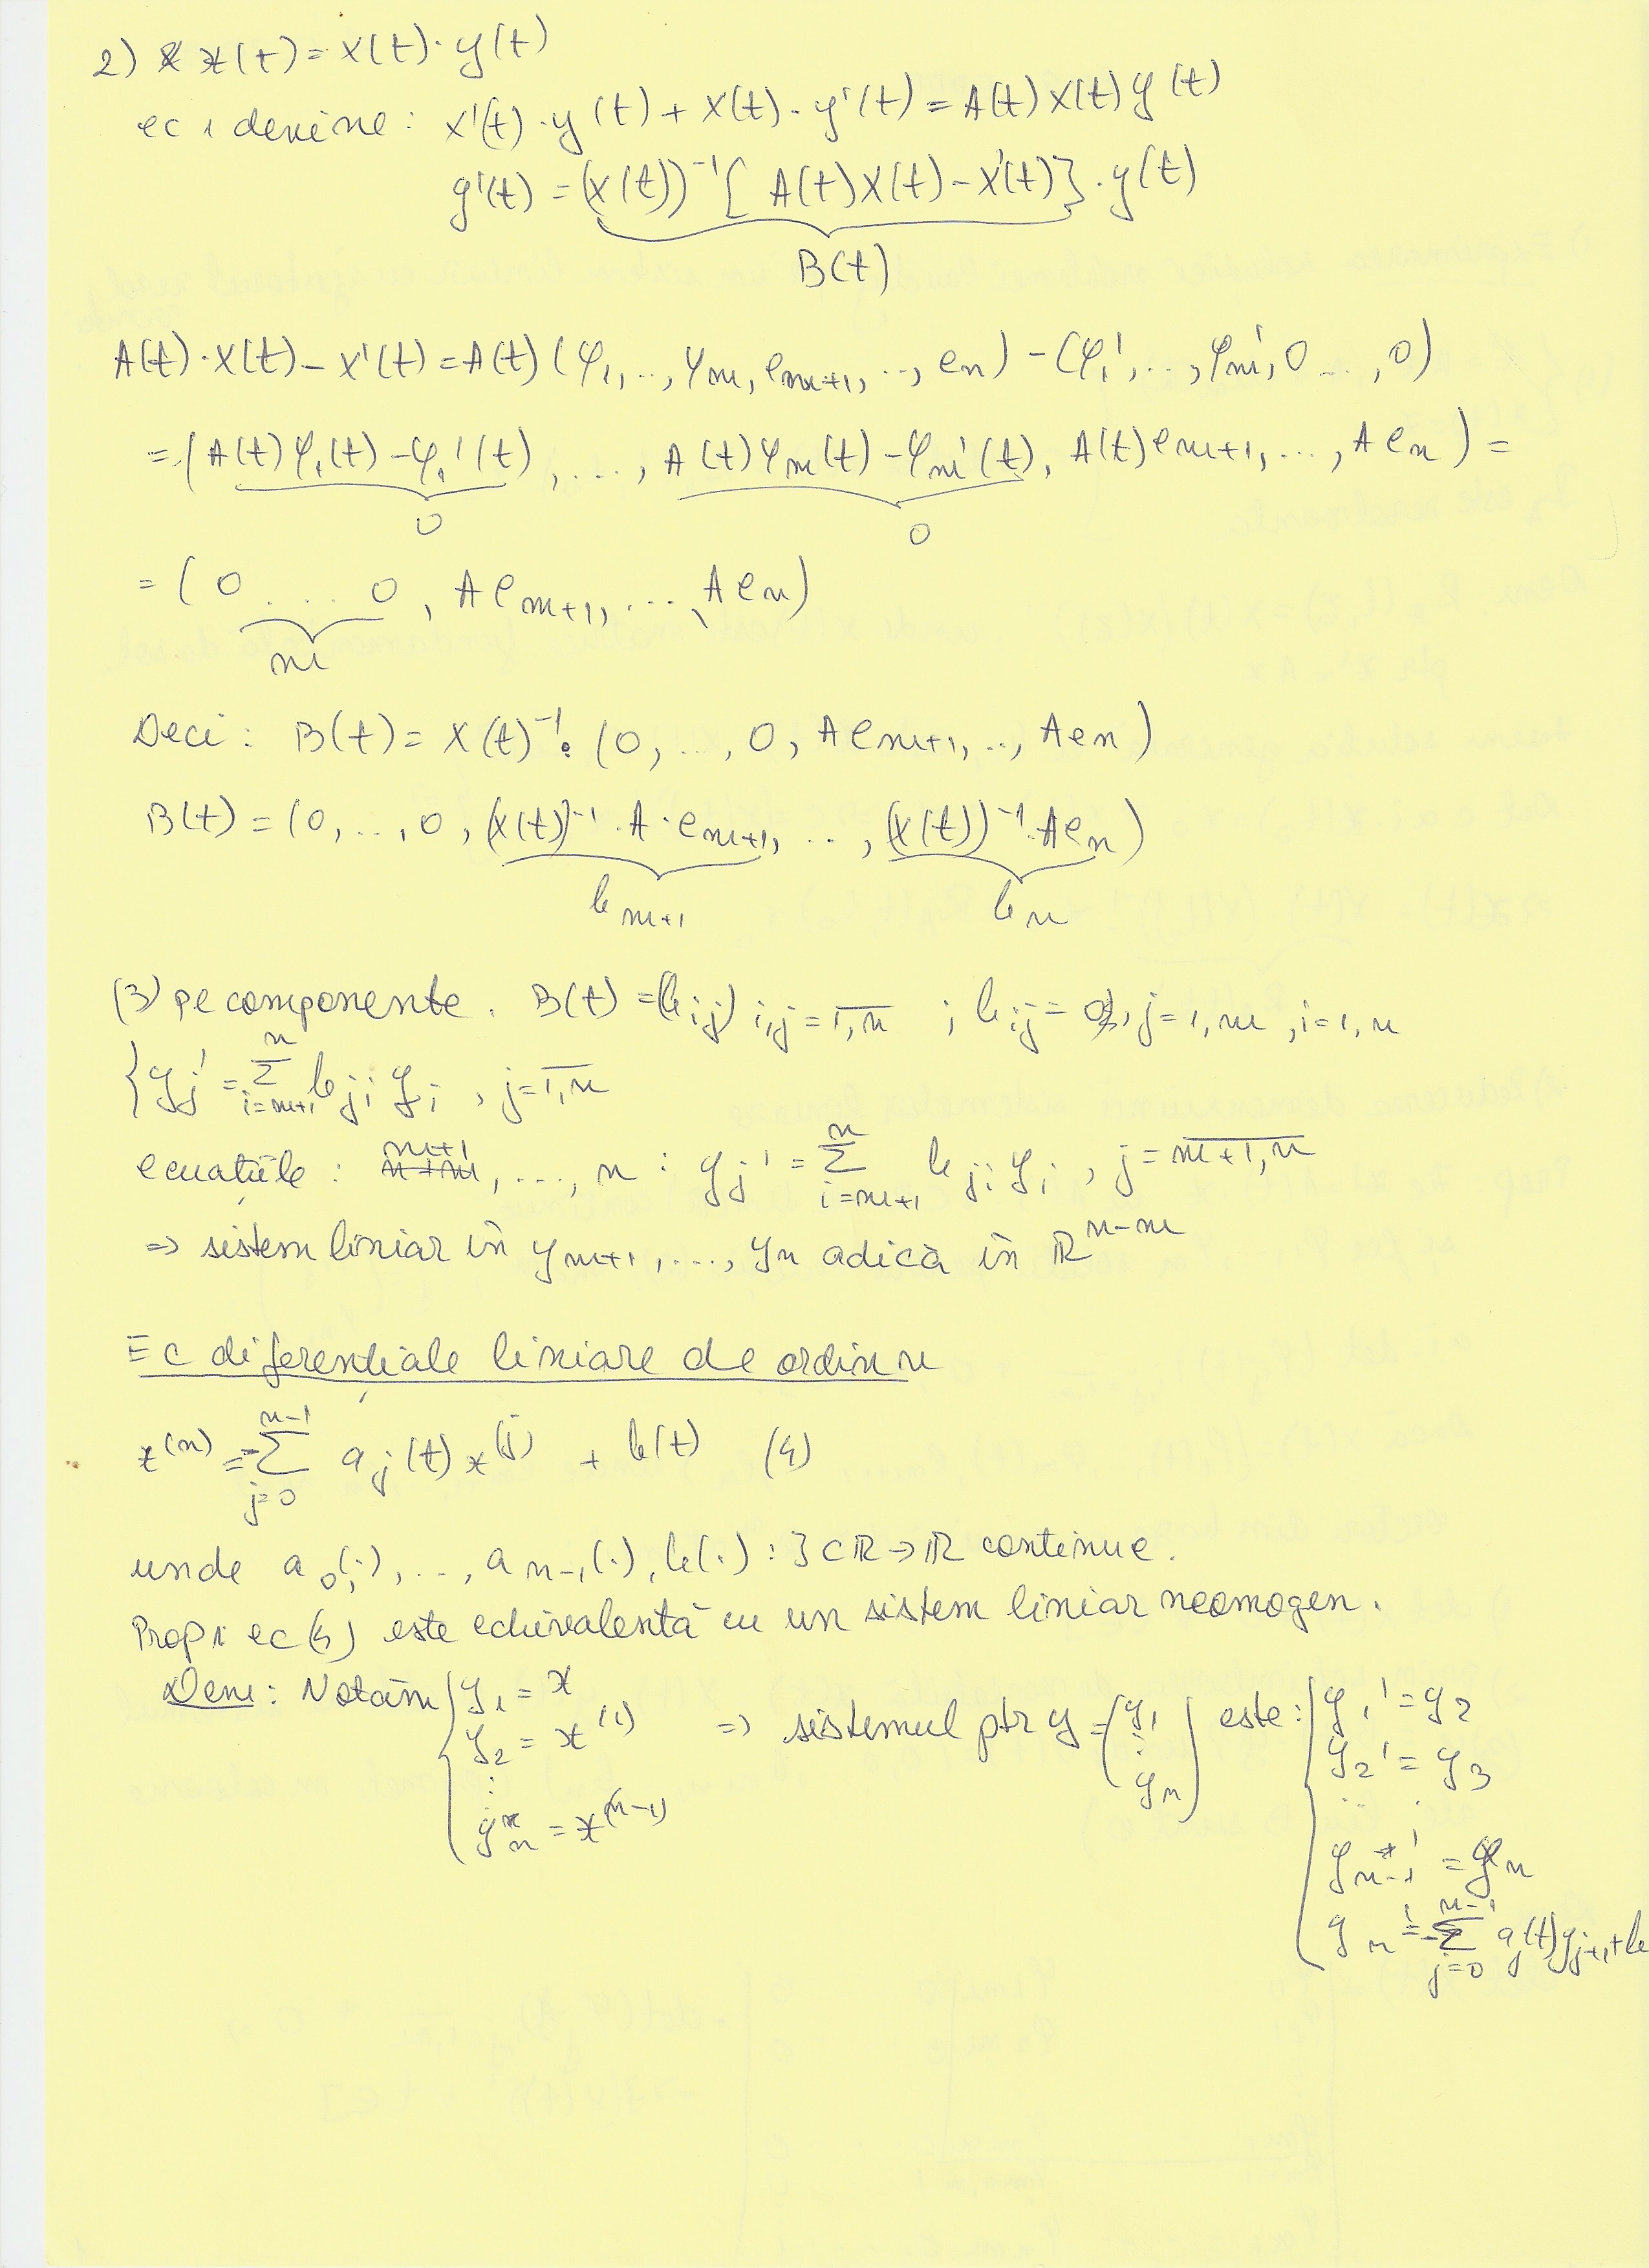 2) x(t) = X(t)·y(t)
ec 1 devine: X'(t)·y(t) + X(t)·y'(t) = A(t)X(t)y(t)
y'(t) = (X(t))⁻¹[A(t)X(t) − X'(t)]·y(t)
B(t)
A(t)·X(t) − X'(t) = A(t)(φ₁,..,φₘ, eₘ₊₁,.., eₙ) − (φ₁',..., φₘ', 0...,0)
= (A(t)φ₁(t) − φ₁'(t), ..., A(t)φₘ(t) − φₘ'(t), A(t)eₘ₊₁,..., Aeₙ) =
0 0
= (0...0, Aeₘ₊₁,..., Aeₙ)
m
Deci: B(t) = X(t)⁻¹·(0,...,0, Aeₘ₊₁,.., Aeₙ)
B(t) = (0,...,0, (X(t))⁻¹·A·eₘ₊₁, .., (X(t))⁻¹·Aeₙ)
bₘ₊₁ bₙ
(3) pe componente. B(t) = (b_ij) i,j=1,n ; b_ij = 0, j=1,m, i=1,n
{ y_j' = Σ_{i=m+1}^{n} b_ji y_i, j=1,n
ecuațiile: m+1,...,n : y_j' = Σ_{i=m+1}^{n} b_ji y_i, j=m+1,n
=> sistem liniar în yₘ₊₁,..., yₙ adică în ℝⁿ⁻ᵐ
Ec diferențiale liniare de ordin n
x⁽ⁿ⁾ = Σ_{j=0}^{n-1} a_j(t) x^(j) + b(t) (4)
unde a₀(.),..., aₙ₋₁(.), b(.) : I⊂ℝ→ℝ continue.
Prop 1 ec (4) este echivalentă cu un sistem liniar neomogen.
Dem: Notăm { y₁ = x
y₂ = x⁽¹⁾
⋮
yₙ = x⁽ⁿ⁻¹⁾
=> sistemul ptr y = (y₁ ⋮ yₙ) este: { y₁' = y₂
y₂' = y₃
.. .
yₙ₋₁' = yₙ
yₙ' = Σ_{j=0}^{n-1} a_j(t)y_{j+1} + b